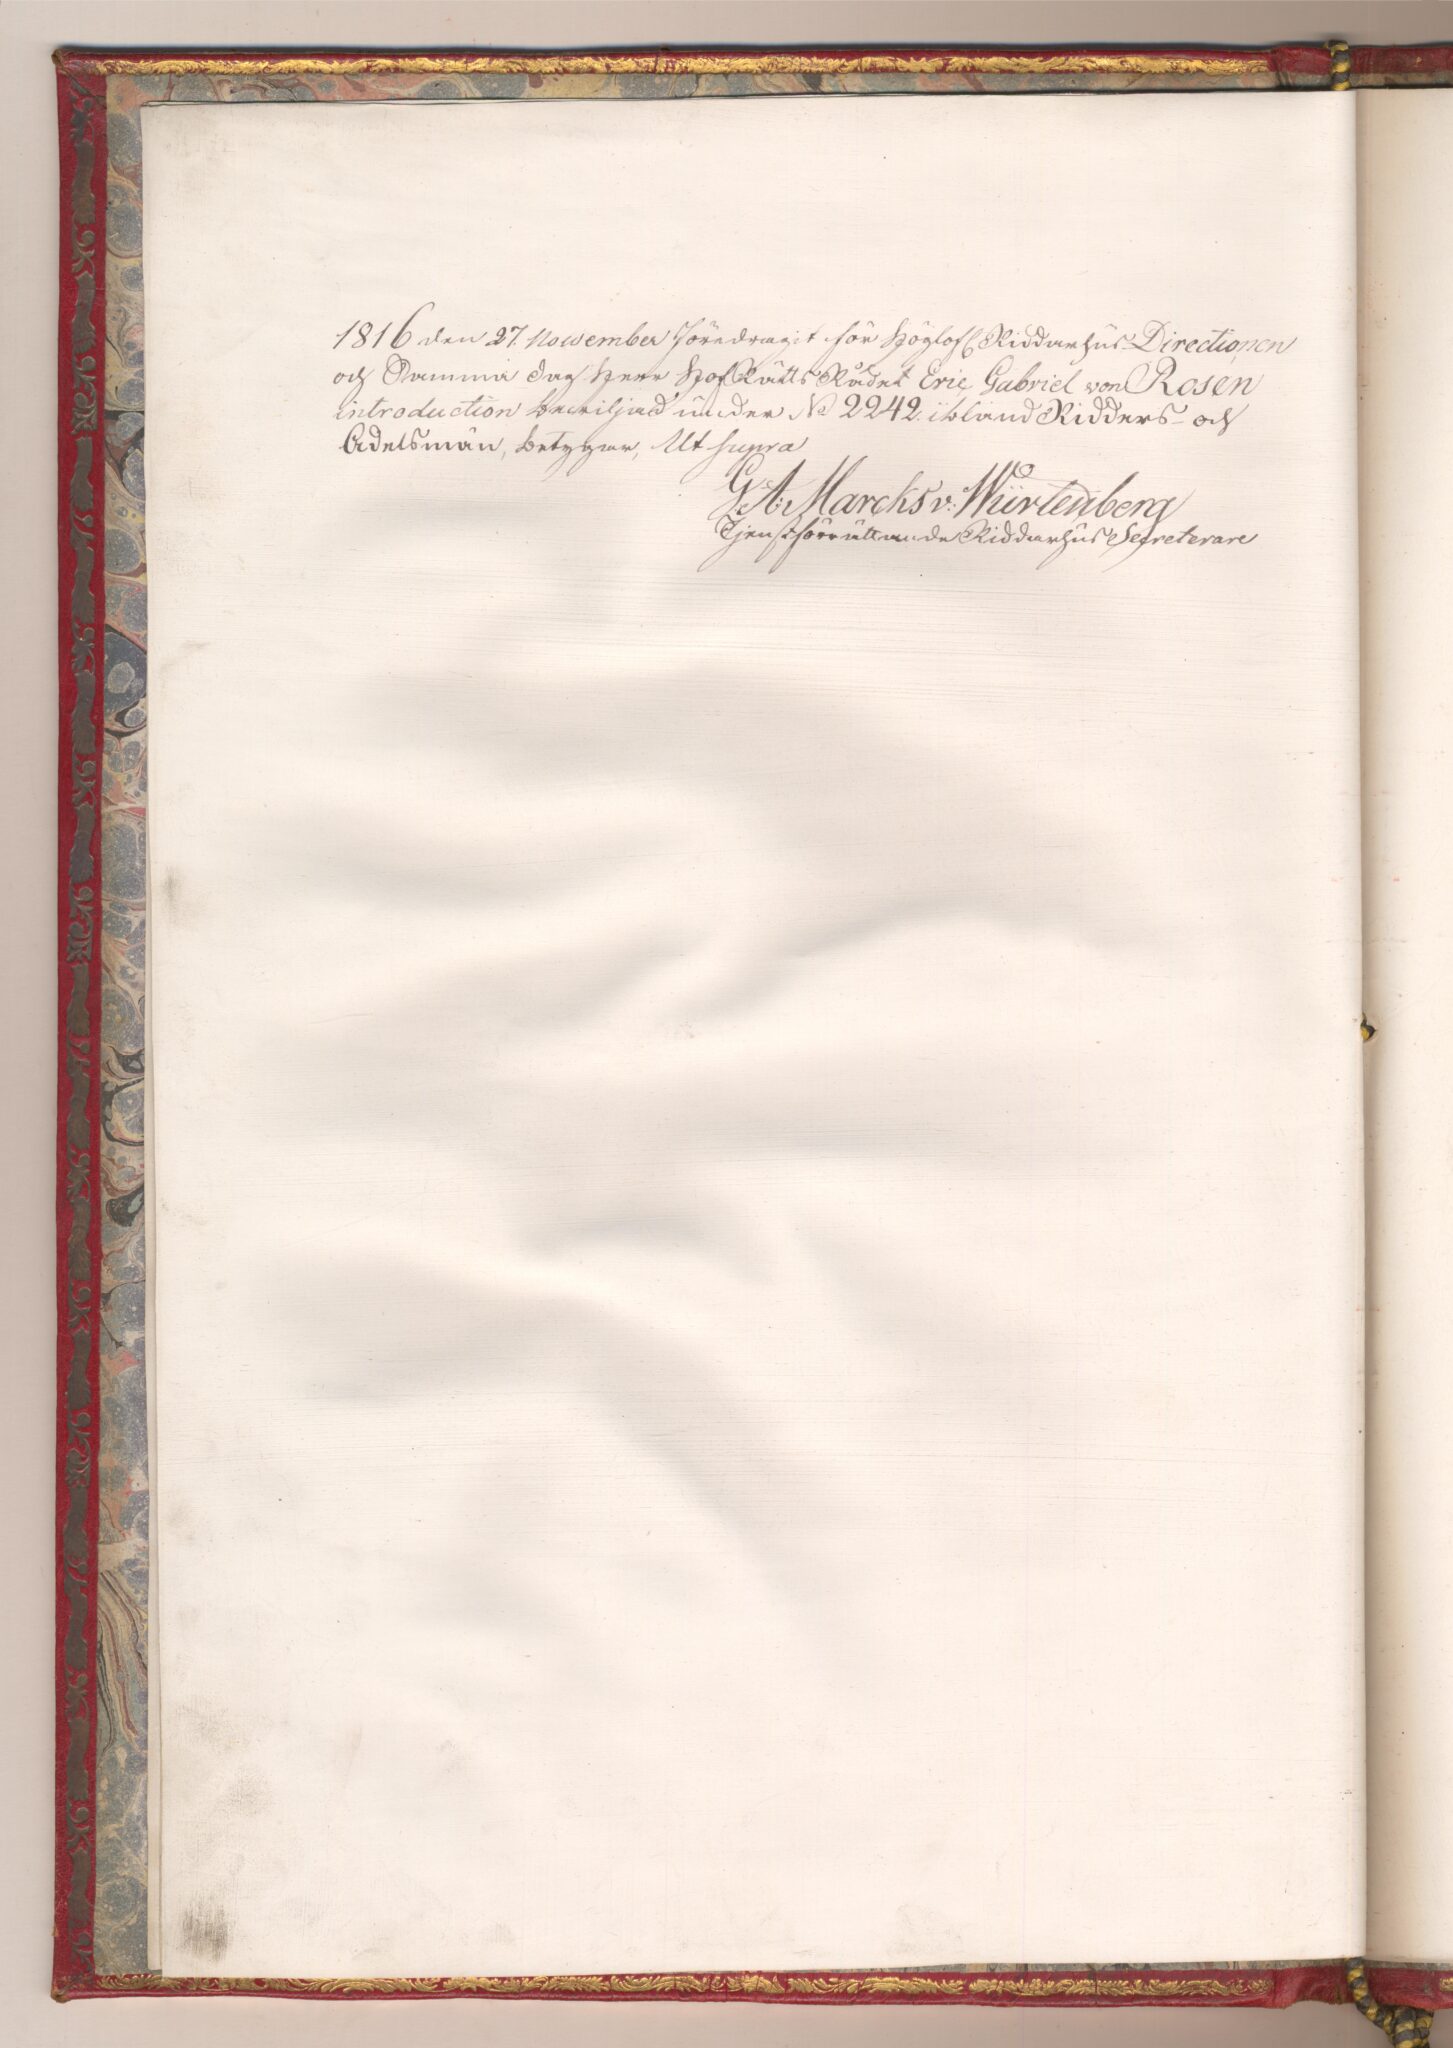 1816 den 27. November föredragit för Höglofl. Riddarhus Directionen
och Samma dag Herr HofRätts Rådet Eric Gabriel von Rosen
introduction beviljad under No 2242. ibland Ridders- och
Adelsmän, betygar, Ut supra
G. A: Marcks v: Würtenberg
Tjenstförrättande Riddarhus Secreterare